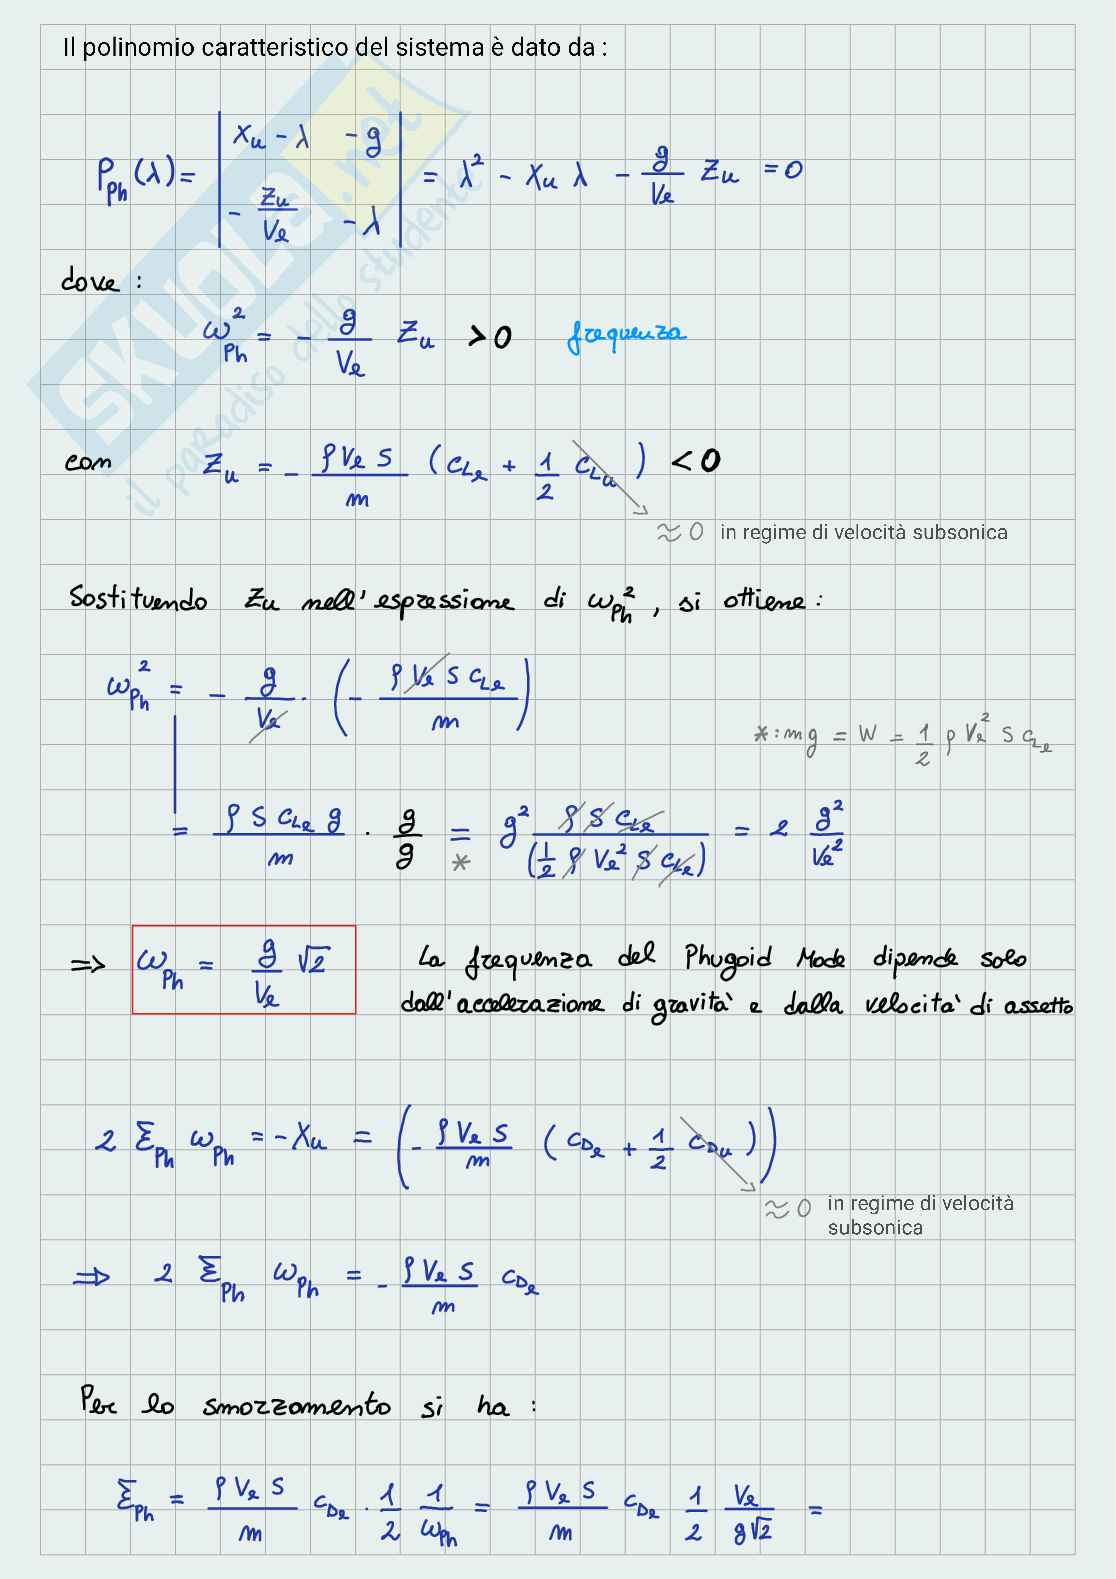 Il polinomio caratteristico del sistema è dato da :
P_Ph (λ) = | X_u - λ   - g ; - Z_u/V_e   - λ | = λ² - X_u λ - g/V_e Z_u = 0
dove :
ω_Ph² = - g/V_e Z_u > 0   frequenza
con   Z_u = - ρ V_e S / m ( C_Le + 1/2 C_Lu ) < 0
≈ 0 in regime di velocità subsonica
Sostituendo Z_u nell'espressione di ω_Ph² , si ottiene :
ω_Ph² = - g/V_e · ( - ρ V_e S C_Le / m )
* : mg = W = 1/2 ρ V_e² S C_Le
= ρ S C_Le g / m · g/g =* g² ρ S C_Le / ( 1/2 ρ V_e² S C_Le ) = 2 g²/V_e²
=> ω_Ph = g/V_e √2   La frequenza del Phugoid Mode dipende solo
dall'accelerazione di gravità e dalla velocità di assetto
2 Ξ_Ph ω_Ph = - X_u = ( - ρ V_e S / m ( C_De + 1/2 C_Du ) )
≈ 0 in regime di velocità
subsonica
=> 2 Ξ_Ph ω_Ph = - ρ V_e S / m C_De
Per lo smorzamento si ha :
Ξ_Ph = ρ V_e S / m C_De · 1/2 1/ω_Ph = ρ V_e S / m C_De 1/2 V_e / g√2 =
SKUOLA.net
il paradiso dello studente